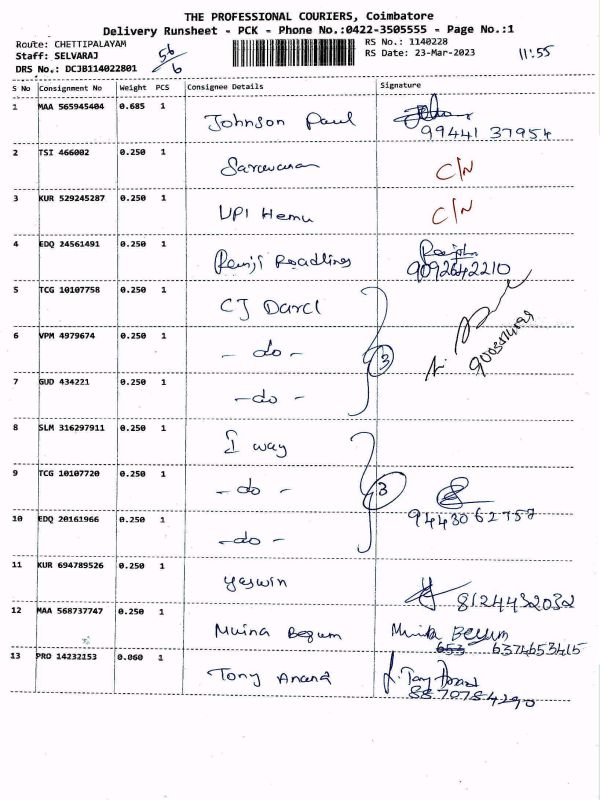 THE PROFESSIONAL COURIERS, Coimbatore
Delivery Runsheet - PCK - Phone No.:0422-3505555 - Page No.:1
Route: CHETTIPALAYAM RS No.: 1140228
Staff: SELVARAJ 56/6 RS Date: 23-Mar-2023 11:55
DRS No.: DCJB114022801
S No Consignment No Weight PCS Consignee Details Signature
1 MAA 565945404 0.685 1 Johnson Paul
99441 37954
2 TSI 466002 0.250 1 Saravanan C/N
3 KUR 529245287 0.250 1 UPI Hemu C/N
4 EDQ 24561491 0.250 1 Renji Roadlines
9092642210
5 TCG 10107758 0.250 1 CJ Darcl
6 VPM 4979674 0.250 1 - do - 3
7 GUD 434221 0.250 1 - do -
8 SLM 316297911 0.250 1 I way
9 TCG 10107720 0.250 1 - do - 3
9443062757
10 EDQ 20161966 0.250 1 - do -
11 KUR 694789526 0.250 1 yaswin 8124432032
12 MAA 568737747 0.250 1 Muina Begum Begum
653 6374653415
13 PRO 14232153 0.060 1 Tony Anand
8870784290